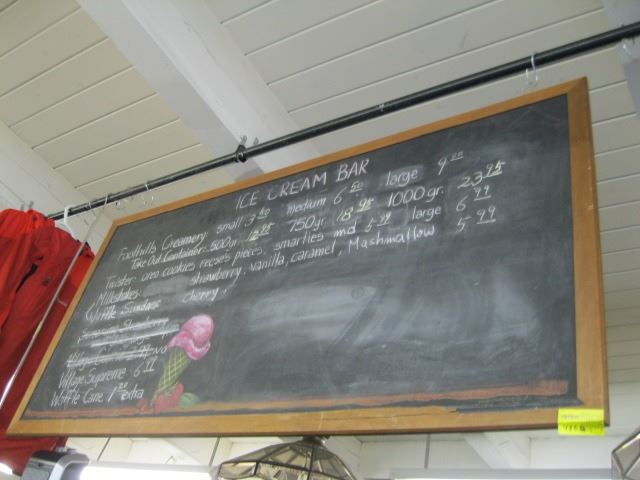 ICE CREAM BAR
Foothills Creamery: small 3.50 medium 6.50 large 9.00
Take Out Container: 500gr. 12.95 750gr. 18.95 1000gr. 23.95
Twister: oreo cookies, reese's pieces, smarties md 5.99 large 6.99
Milkshakes: strawberry, vanilla, caramel, Mashmallow 5.99
Waffle Sundae cherry
Village Supreme 6
Waffle Cone 1 extra